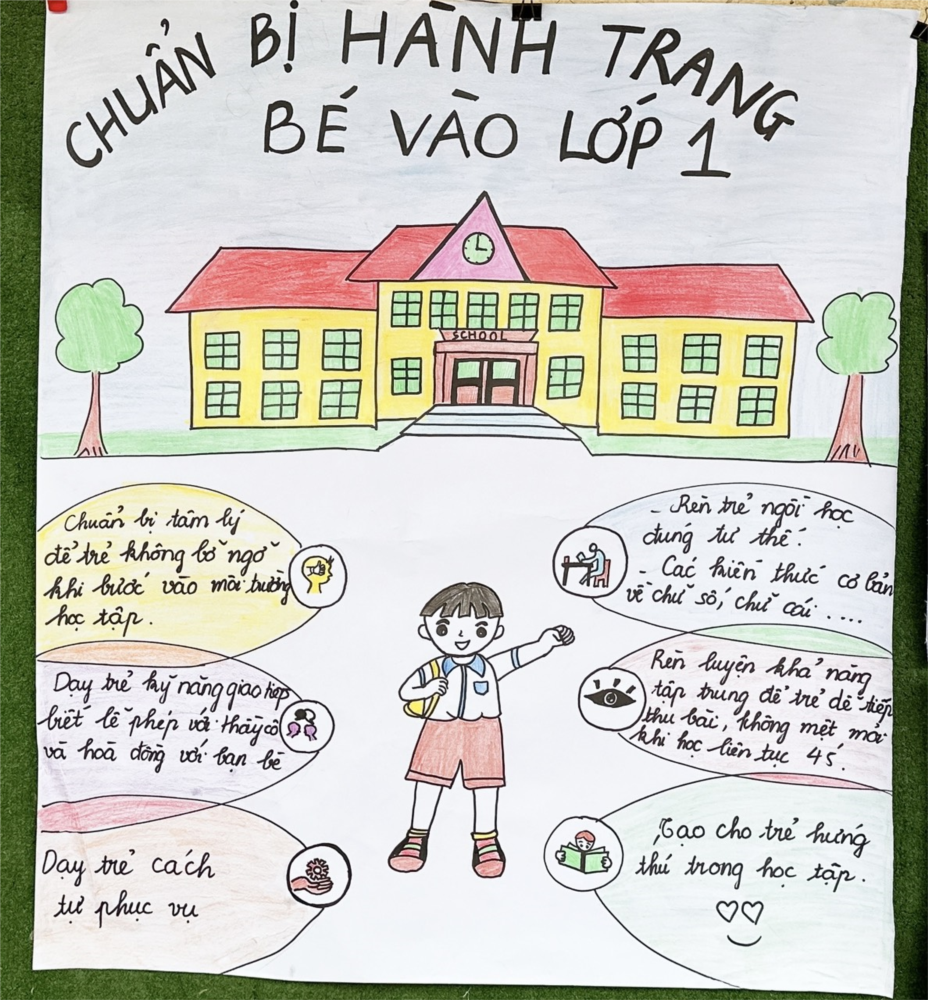 CHUẨN BỊ HÀNH TRANG
BÉ VÀO LỚP 1
SCHOOL
Chuẩn bị tâm lý
để trẻ không bỡ ngỡ
khi bước vào môi trường
học tập.
Dạy trẻ kỹ năng giao tiếp
biết lễ phép với thầy cô
và hoà đồng với bạn bè
Dạy trẻ cách
tự phục vụ
- Rèn trẻ ngồi học
đúng tư thế.
- Các kiến thức cơ bản
về chữ số, chữ cái ....
Rèn luyện khả năng
tập trung để trẻ dễ tiếp
thu bài, không mệt mỏi
khi học liên tục 45'.
Tạo cho trẻ hứng
thú trong học tập.